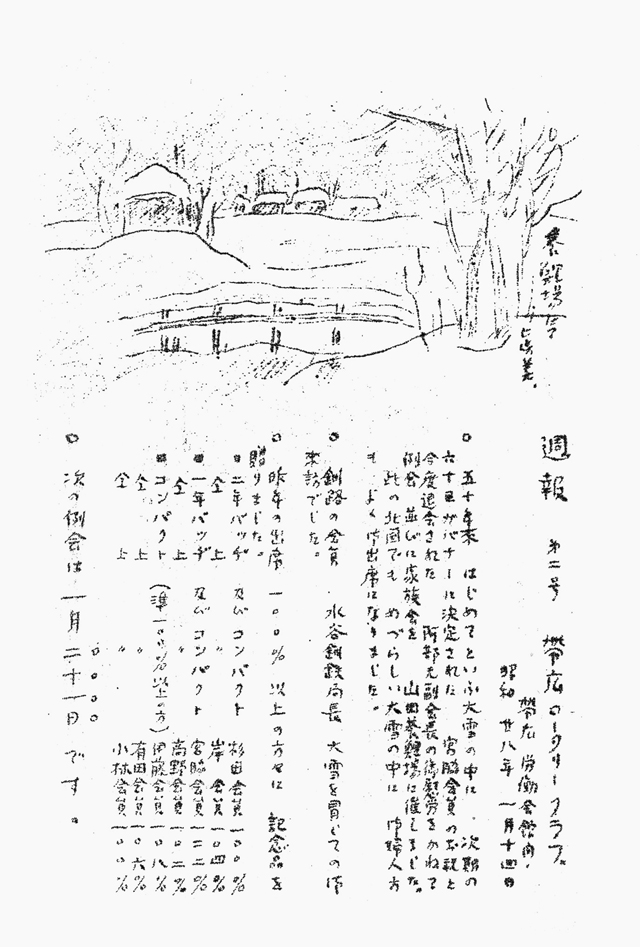 養鶏場にて
週報 第二号 帯広ロータリークラブ
帯広 労働会館内
昭和 廿八年 一月十四日
○ 五十年来 はじめてといふ大雪の中に 次期の
六十五がバナーに決定された 宮脇会員のお祝と
今度退会された 阿部元副会長の御慰労をかねて
例会 並びに家族会を 山田養鶏場に催しました。
此の北国でも めづらしい大雪の中に 御婦人方
も よく御出席になりました。
○ 釧路の会員 水谷釧鉄局長 大雪を冒しての御
来訪でした。
○ 昨年の出席 一〇〇% 以上の方々に 記念品を
贈りました。
■二年バッヂ 及びコンパクト 杉田会員一〇〇%
仝 上 岸 会員一〇四%
■一年バッヂ 及びコンパクト 宮脇会員一二二%
仝 上 〃 高野会員一〇二%
■コンパクト (準一〇〇%以上の方) 伊藤会員一〇八%
仝 上 〃 有田会員一〇六%
仝 上 〃 小林会員一〇〇%
○ 次の例会は 一月二十一日 です。